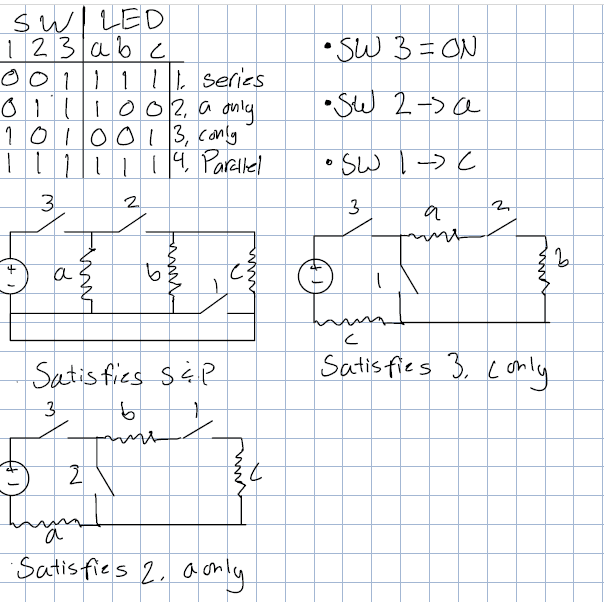 SW | LED
1 2 3 | a b c
0 0 1 | 1 1 1 | 1. series
0 1 1 | 1 0 0 | 2. a only
1 0 1 | 0 0 1 | 3, c only
1 1 1 | 1 1 1 | 4. Parallel
• SW 3 = ON
• SW 2 → a
• SW 1 → C
3 2
+ - a b 1 C
Satisfies S & P
3 a 2
+ - 1 b
c
Satisfies 3. c only
3 b 1
+ - 2 C
a
Satisfies 2. a only